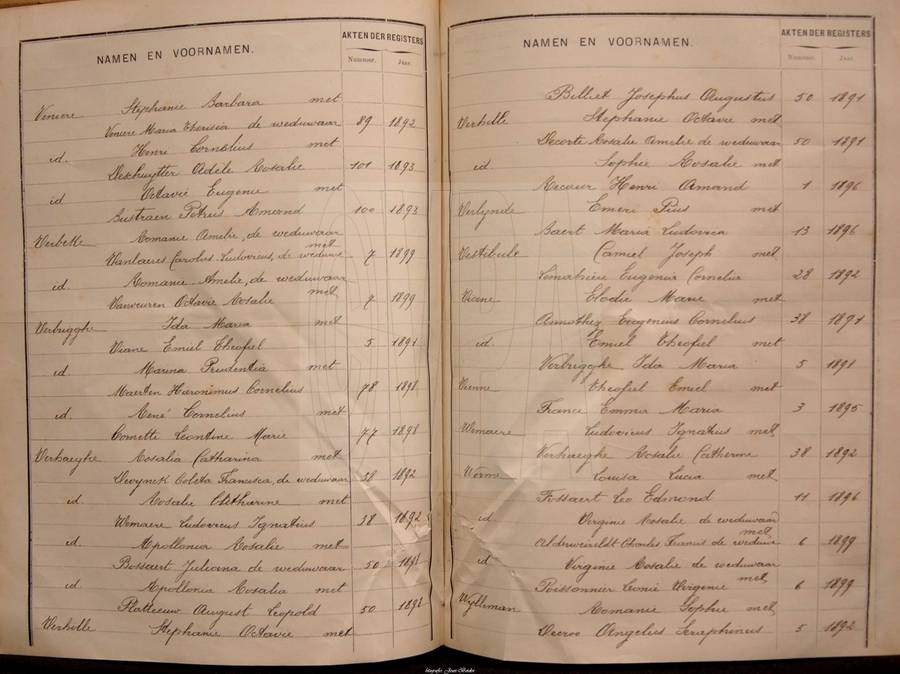 NAMEN EN VOORNAMEN. AKTEN DER REGISTERS
Nummer. Jaar.
Veniere Stephanie Barbara met
Veniere Maria Theresia de weduwaar 89 1892
id. Henri Cornelius met
Deschuytter Odile Rosalie 101 1893
id Octavie Eugenie met
Bustraen Petrus Amernd 100 1893
Verbeke Romanie Amelie, de weduwaar met
Wanlaeres Carolus-Ludovicus, de weduwe 7 1899
id. Romanie Amelie, de weduwaar met
Vanveuren Octavie Rosalie 7 1899
Verbrigghe Ida Maria met
Viane Emiel Theofiel 5 1891
id. Marina Prudentia met
Maerten Hieronimus Cornelius 78 1898
id. René Cornelius met
Cornette Leontine Marie 77 1898
Verhaeghe Rosalia Catharina met
Devynck Coleta Francisca, de weduwaar 38 1892
id Rosalie Catharine met
Wemaere Ludovicus Ignatius 38 1892
id Apollonia Rosalie met
Bossaert Juliana de weduwaar 50 1891
id. Apollonia Rosalia met
Platteeuw August Leopold 50 1891
Verhille Stephanie Octavie met
NAMEN EN VOORNAMEN. AKTEN DER REGISTERS
Nummer. Jaar.
Billiet Josephus Augustus 50 1891
Verhille Stephanie Octavie met
Decorte Rosalie Amelie de weduwaar 50 1891
id Sophie Rosalie met
Recour Henri Amand 1 1896
Verlynde Emeri Pius met
Baert Maria Ludovica 13 1896
Vestibule Camiel Joseph met
Lemahieu Eugenia Cornelia 28 1892
Viane Elodie Marie met
Annothey Eugenius Cornelius 38 1891
id. Emiel Theofiel met
Verbrigghe Ida Maria 5 1891
Vienne Theofiel Emiel met
France Emma Maria 3 1895
Wemaere Ludovicus Ignatius met
Verhaeghe Rosalie Catherine 38 1892
Wams Louisa Lucia met
Fossaert Leo Edmond 11 1896
id. Virginie Rosalie de weduwaar met
Alderweireldt Charles Francis de weduwe 6 1899
id Virginie Rosalie de weduwaar met
Poissonnier Leonie Virginie 6 1899
Wylleman Romanie Sophie met
Decroo Angelus Seraphinus 5 1892